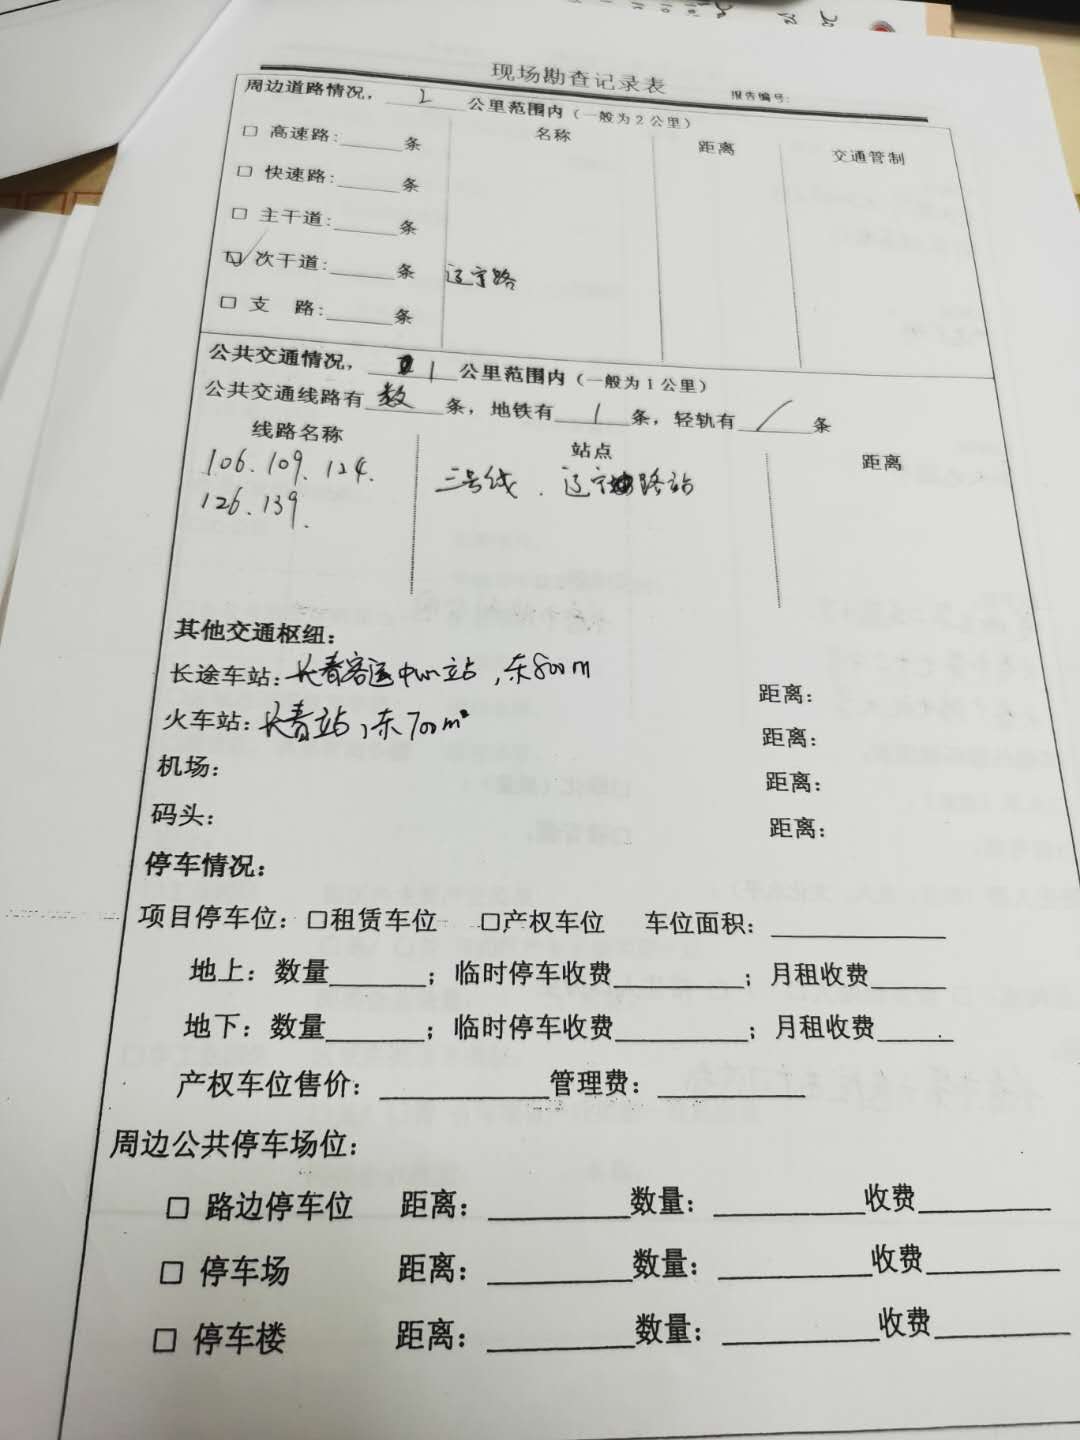 现场勘查记录表
报告编号:
周边道路情况，2公里范围内（一般为2公里）
名称 距离 交通管制
□ 高速路:______条
□ 快速路:______条
□ 主干道:______条
☑ 次干道:______条 辽宁路
□ 支 路:______条
公共交通情况，1公里范围内（一般为1公里）
公共交通线路有数条，地铁有1条，轻轨有/条
线路名称 站点 距离
106、109、124、 三号线、辽宁路站
126、139、
其他交通枢纽：
长途车站：长春客运中心站，东800m 距离：
火车站：长春站，东700m 距离：
机场： 距离：
码头： 距离：
停车情况：
项目停车位：□租赁车位 □产权车位 车位面积：__________
地上：数量______；临时停车收费________；月租收费_____
地下：数量______；临时停车收费________；月租收费_____
产权车位售价：__________管理费：_________
周边公共停车场位：
□ 路边停车位 距离：_________数量：_________收费________
□ 停车场 距离：_________数量：_________收费________
□ 停车楼 距离：_________数量：_________收费________